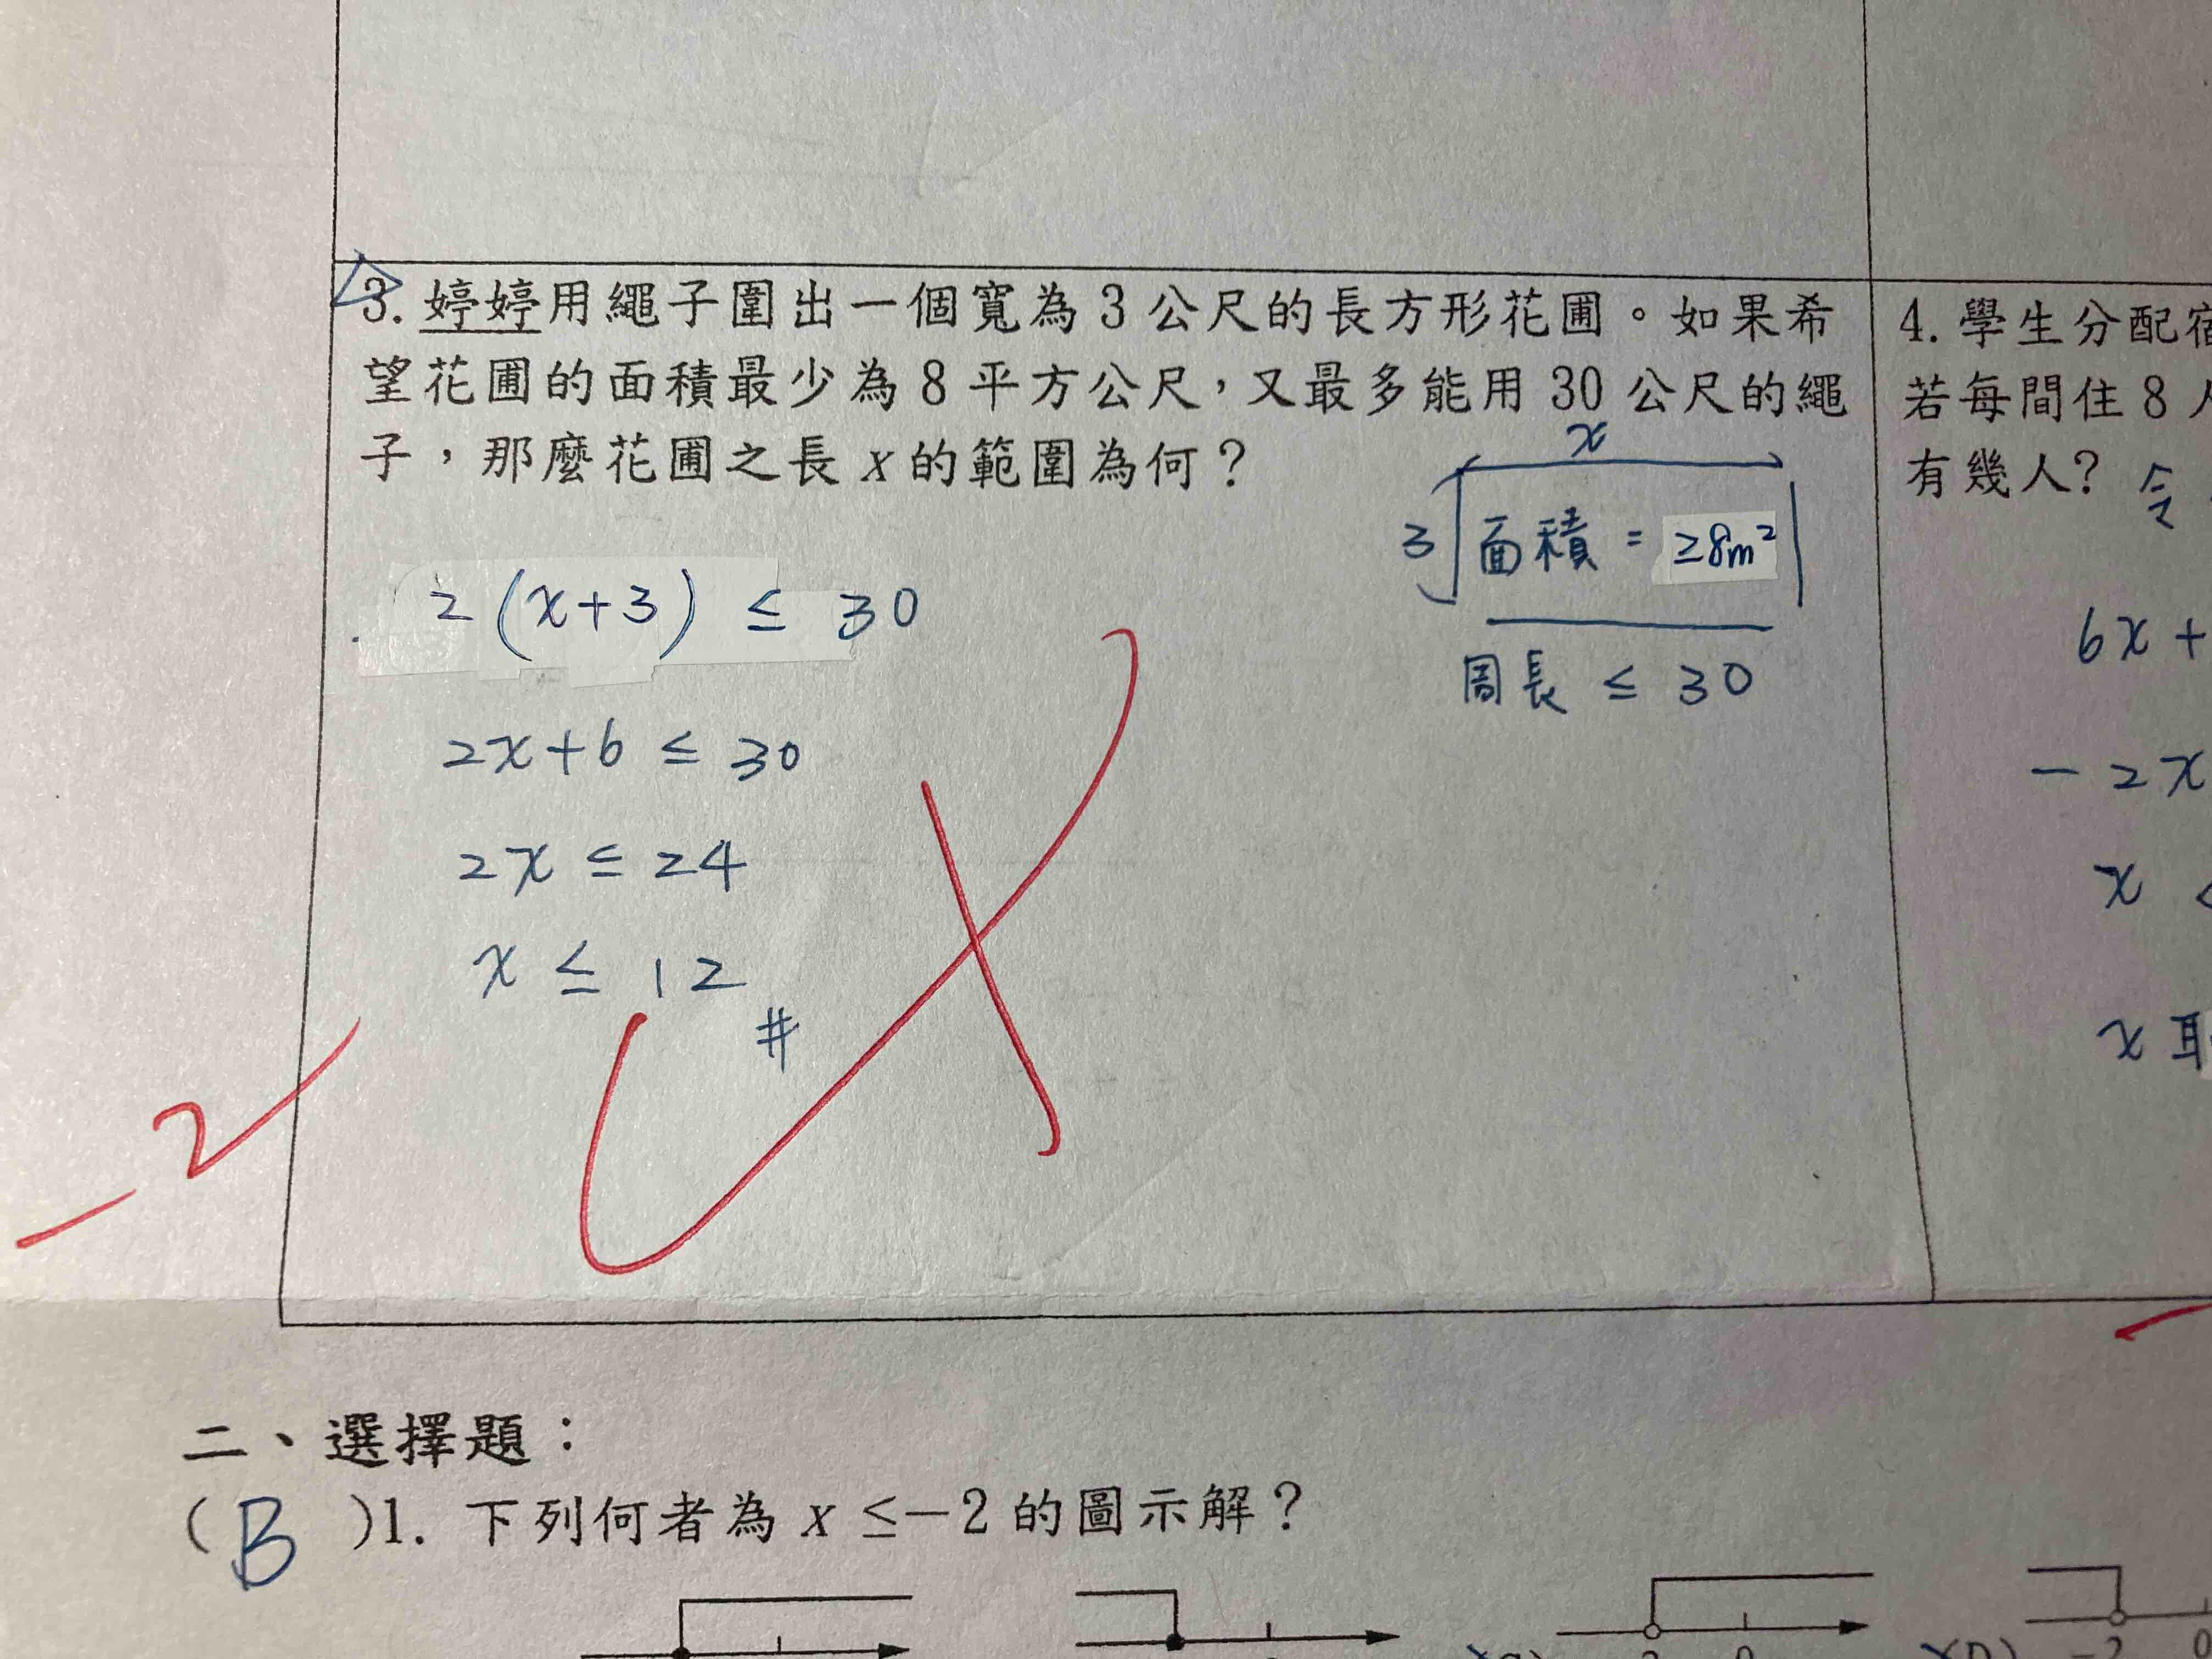 3. 婷婷用繩子圍出一個寬為 3 公尺的長方形花圃。如果希
望花圃的面積最少為 8 平方公尺,又最多能用 30 公尺的繩
子,那麼花圃之長 x 的範圍為何?
x
3 面積 = ≥8m²
周長 ≤ 30
2(x+3) ≤ 30
2x+6 ≤ 30
2x ≤ 24
x ≤ 12 #
-2
4. 學生分配宿
若每間住 8 人
有幾人? 令
6x+
-2x
x <
x 取
二、選擇題:
( B )1. 下列何者為 x ≤-2 的圖示解?
-2 0